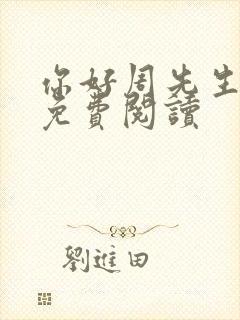 你好周先生
免費閱讀
劉進田